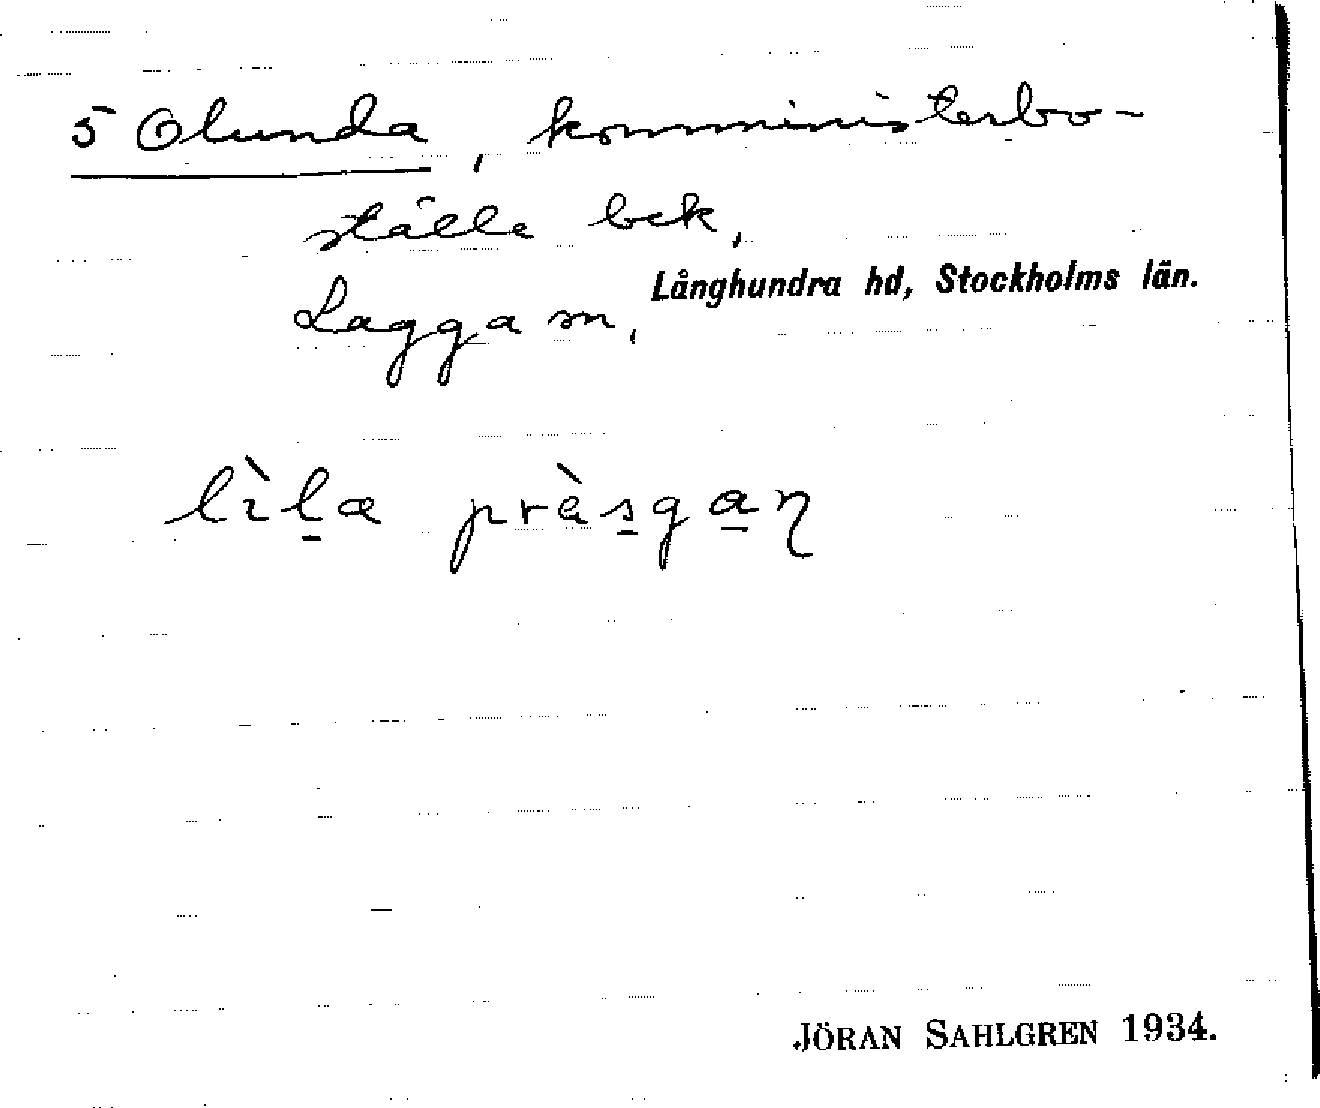 5 Olunda, komministerbo-
ställe bek,
Långhundra hd, Stockholms län.
Lagga sn,
lìl̠a pràs̠ga̠ŋ
JÖRAN SAHLGREN 1934.